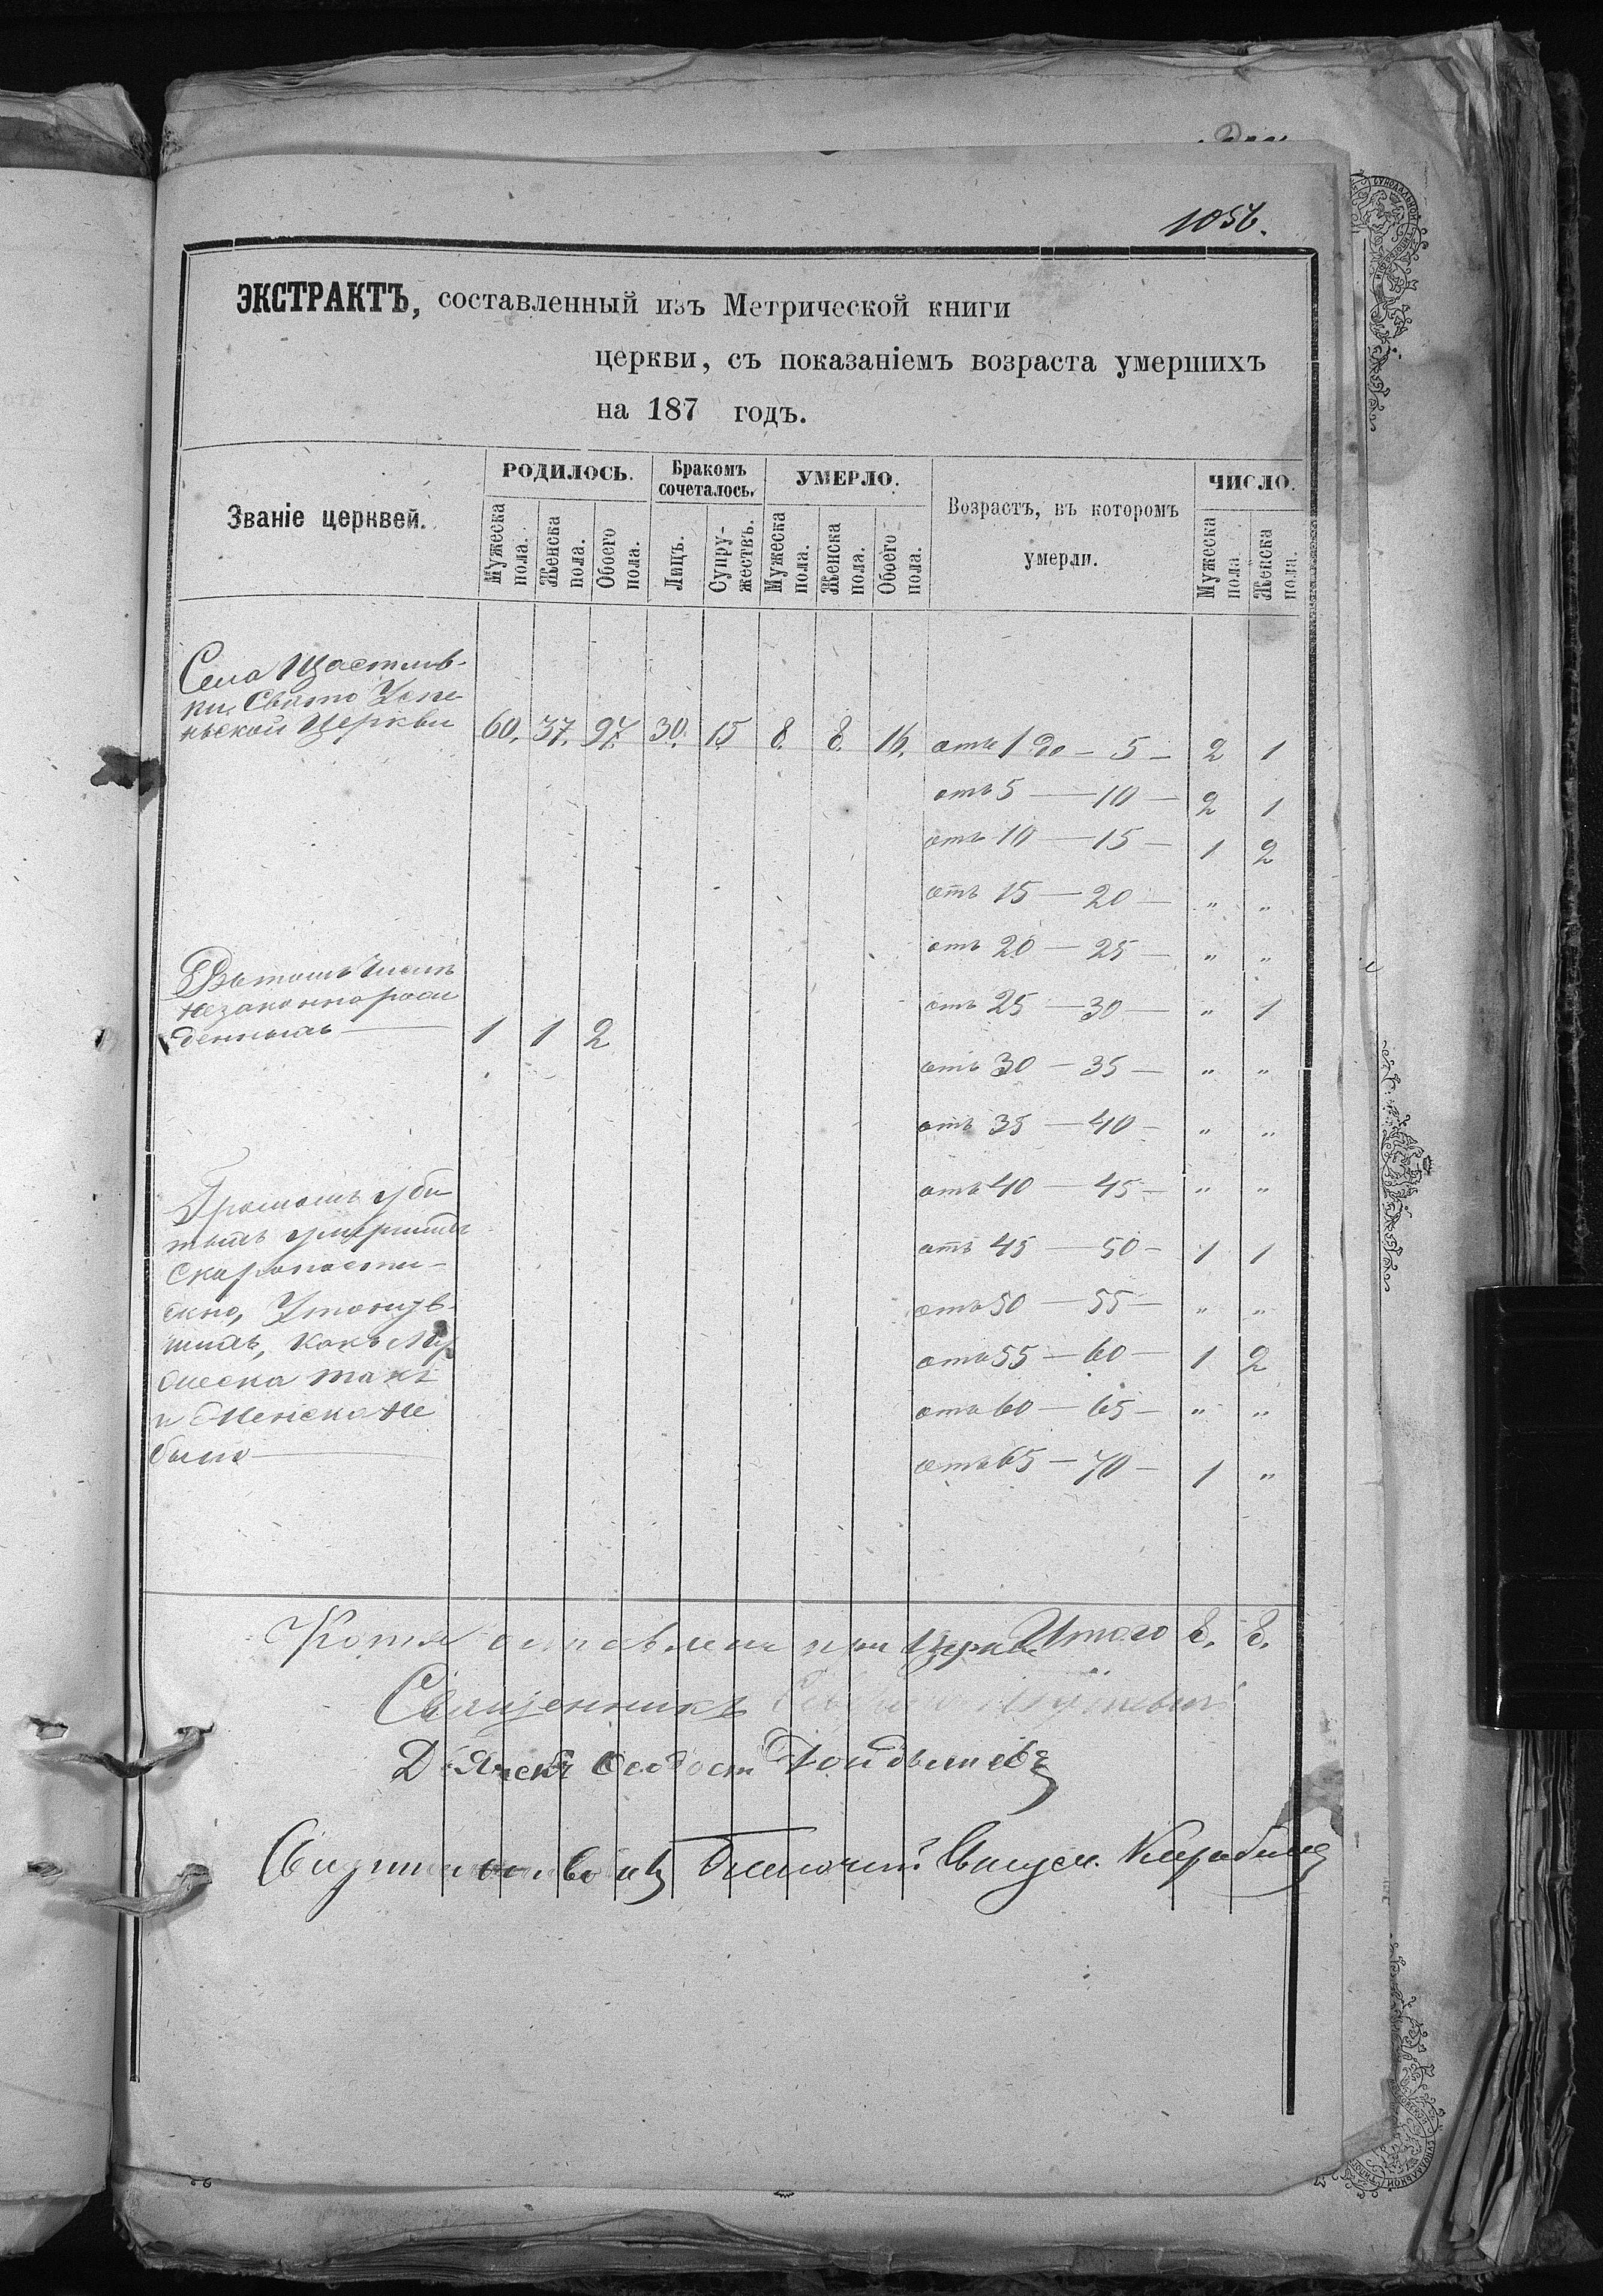 1056.
ЭКСТРАКТЪ, составленный изъ Метрической книги
церкви, съ показаніемъ возраста умершихъ
на 187 годъ.
Званіе церквей.
РОДИЛОСЬ.
Мужеска пола.
Женска пола.
Обоего пола.
Бракомъ сочеталось.
Лицъ.
Супружествъ.
УМЕРЛО.
Мужеска пола.
Женска пола.
Обоего пола.
Возрастъ, въ которомъ
умерли.
ЧИСЛО.
Мужеска пола
Женска пола.
Села Щастлив-
ки, Свято Успе
нской Церкви 60. 37. 97. 30. 15 8. 8. 16. отъ 1 до – 5 – 2 1
отъ 5 — 10 – 2 1
отъ 10 — 15 – 1 2
отъ 15 — 20 — " "
отъ 20 — 25 – " "
Въ томъ числѣ
незаконнорож
денныхъ — 1 1 2
отъ 25 — 30 — " 1
отъ 30 – 35 — " "
отъ 35 — 40 – " "
отъ 40 — 45 – " "
Громомъ уби
тыхъ умершихъ
скоропости-
жно, Утонув-
шихъ, какъ Му
жеска такъ
и Женска не
было —
отъ 45 — 50 – 1 1
отъ 50 — 55 – " "
отъ 55 — 60 — 1 2
отъ 60 — 65 – " "
отъ 65 – 70 – 1 "
Итого 8. 8.
Копія оставлена при Церкви
Священникъ
Дьячекъ Ѳеодосій